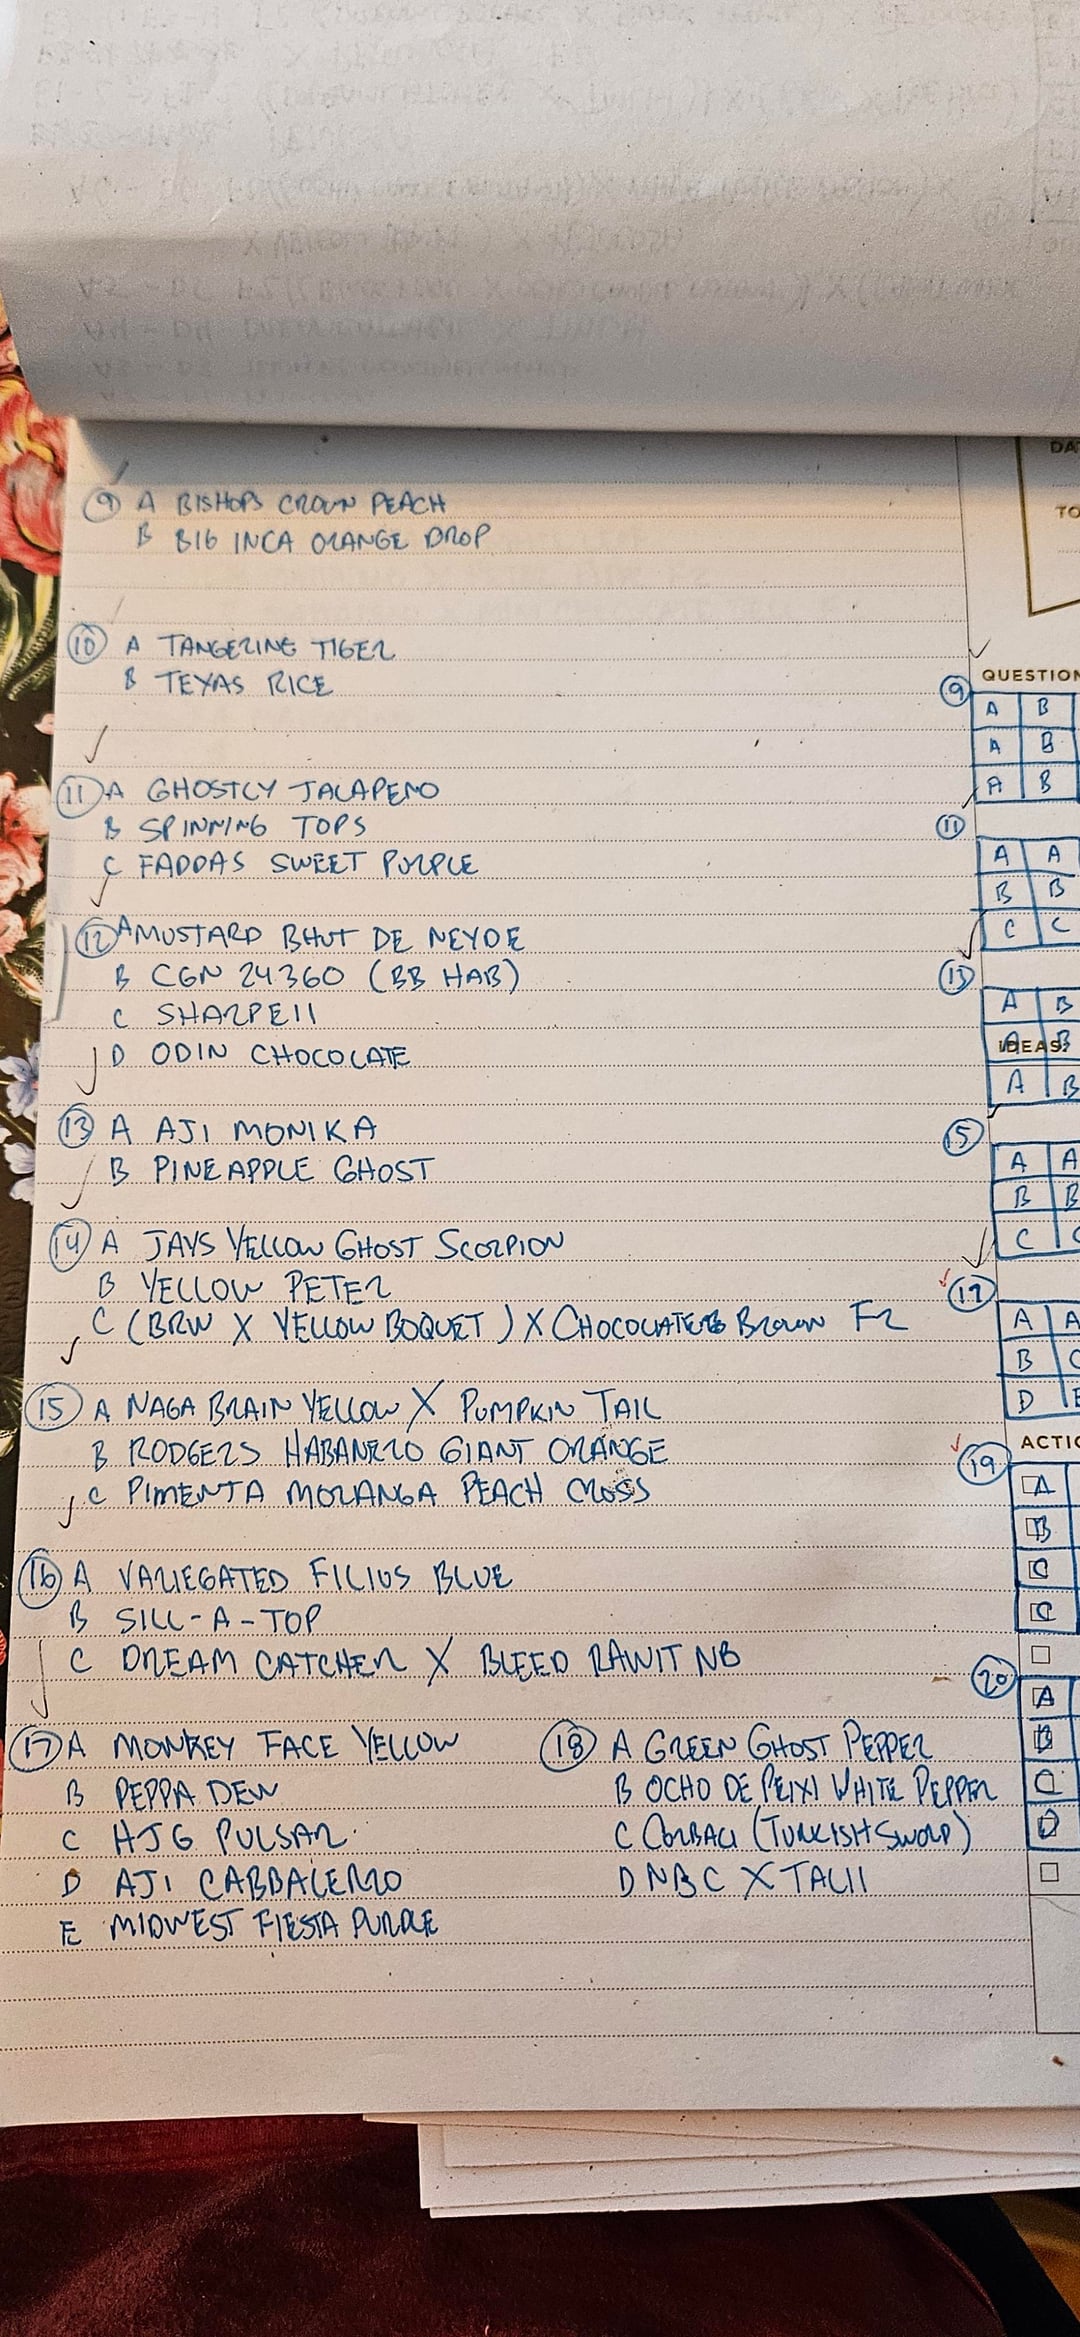 9 A BISHOPS CROWN PEACH
B BIG INCA ORANGE DROP
10 A TANGERINE TIGER
B TEXAS RICE
11 A GHOSTLY JALAPENO
B SPINNING TOPS
C FADDAS SWEET PURPLE
12 A MUSTARD BHUT DE NEYDE
B CGN 24360 (BB HAB)
C SHARPEII
D ODIN CHOCOLATE
13 A AJI MONIKA
B PINEAPPLE GHOST
14 A JAYS YELLOW GHOST SCORPION
B YELLOW PETER
C (BRW X YELLOW BOQUET) X CHOCOLATE BROWN F2
15 A NAGA BRAIN YELLOW X PUMPKIN TAIL
B RODGERS HABANERO GIANT ORANGE
C PIMENTA MORANGA PEACH CROSS
16 A VARIEGATED FILIUS BLUE
B SILL-A-TOP
C DREAM CATCHER X BLEED RAWIT NB
17 A MONKEY FACE YELLOW
B PEPPA DEW
C HJG PULSAR
D AJI CABBALERRO
E MIDWEST FIESTA PURPLE
18 A GREEN GHOST PEPPER
B OCHO DE PEIXI WHITE PEPPER
C CORBACI (TURKISH SWORD)
D NBC X TALII
DA
TO
QUESTION
9
A B
A B
A B
11
A A
B B
C C
13
A B
IDEAS
A B
A B
15
A A
B B
C C
17
A A
B C
D E
ACTIO
19
A
B
C
C
20
A
B
C
D